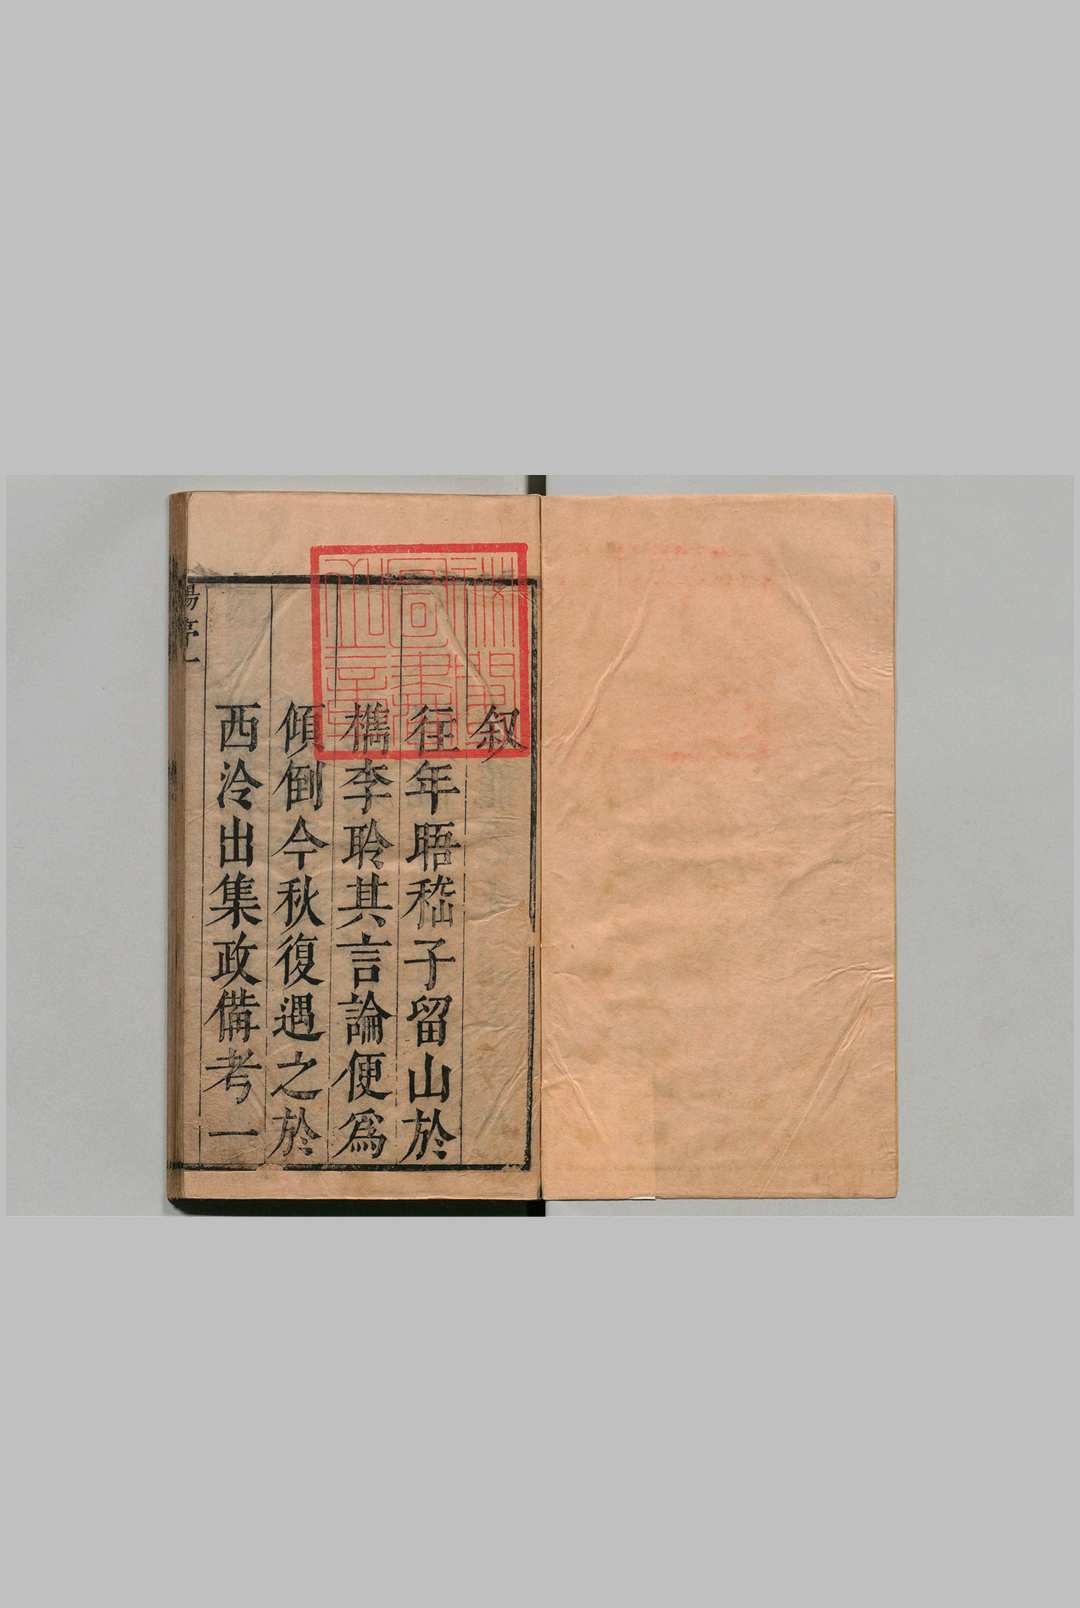 叙
往年晤嵇子留山於
檇李聆其言論便爲
傾倒今秋復遇之於
西泠出集政備考一